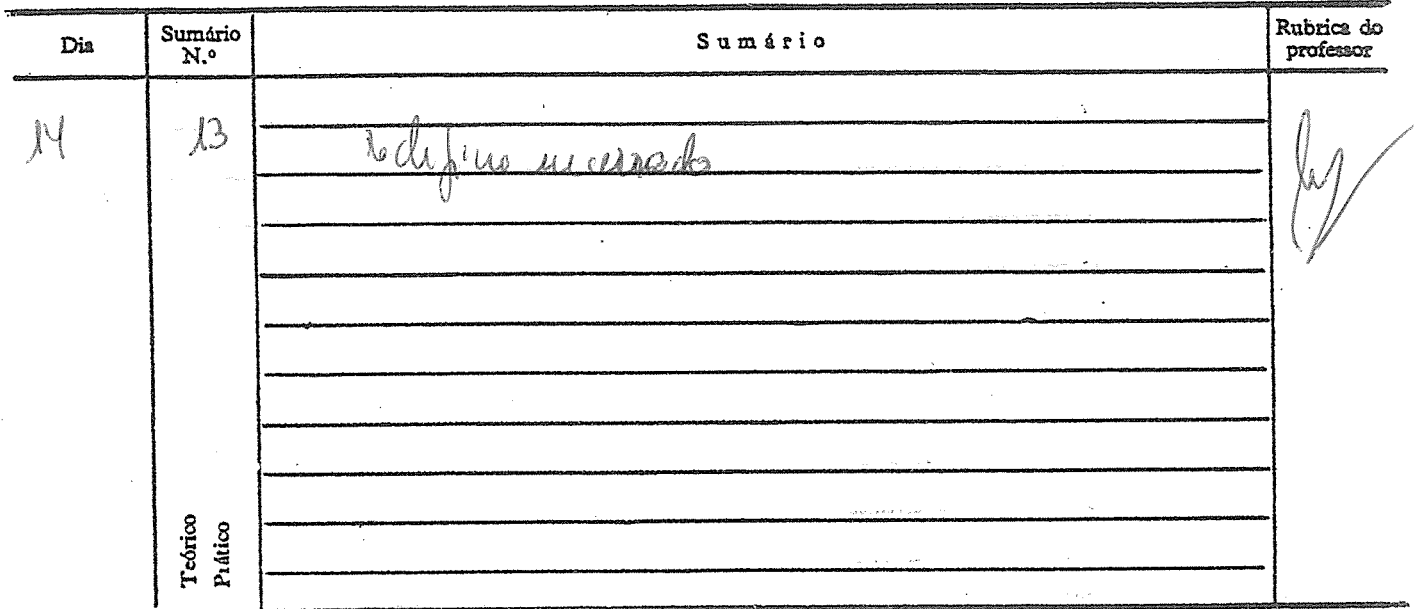 Dia
Sumário N.º
Sumário
Rubrica do professor
14
13
encerrado
Teórico
Prático